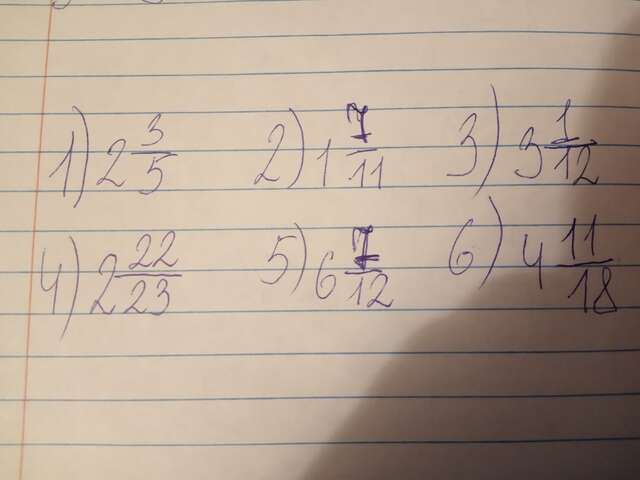 1) 2 3/5 2) 1 7/11 3) 3 1/12
4) 2 22/23 5) 6 7/12 6) 4 11/18